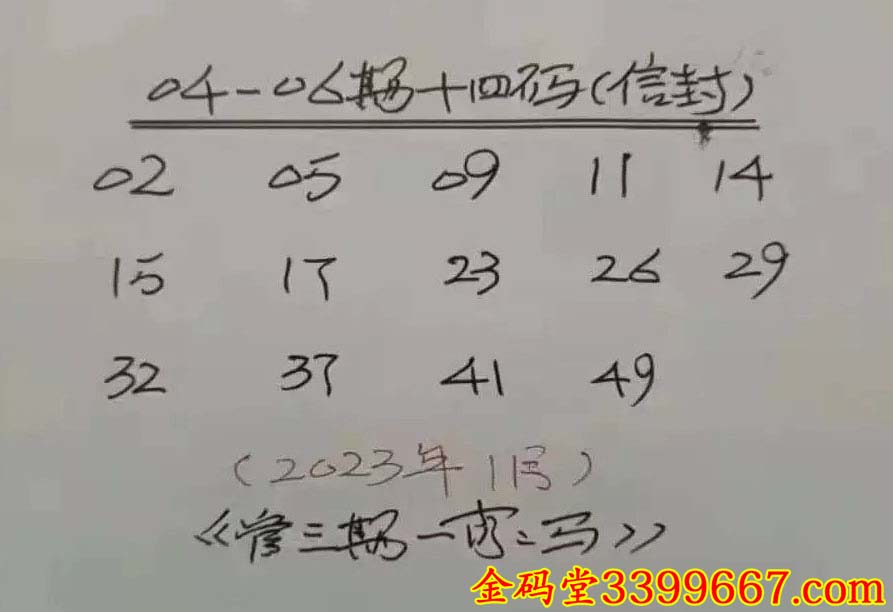 04-06期十四码(信封)
02 05 09 11 14
15 17 23 26 29
32 37 41 49
(2023年11号)
《管三期一肖二马》
金码堂3399667.com